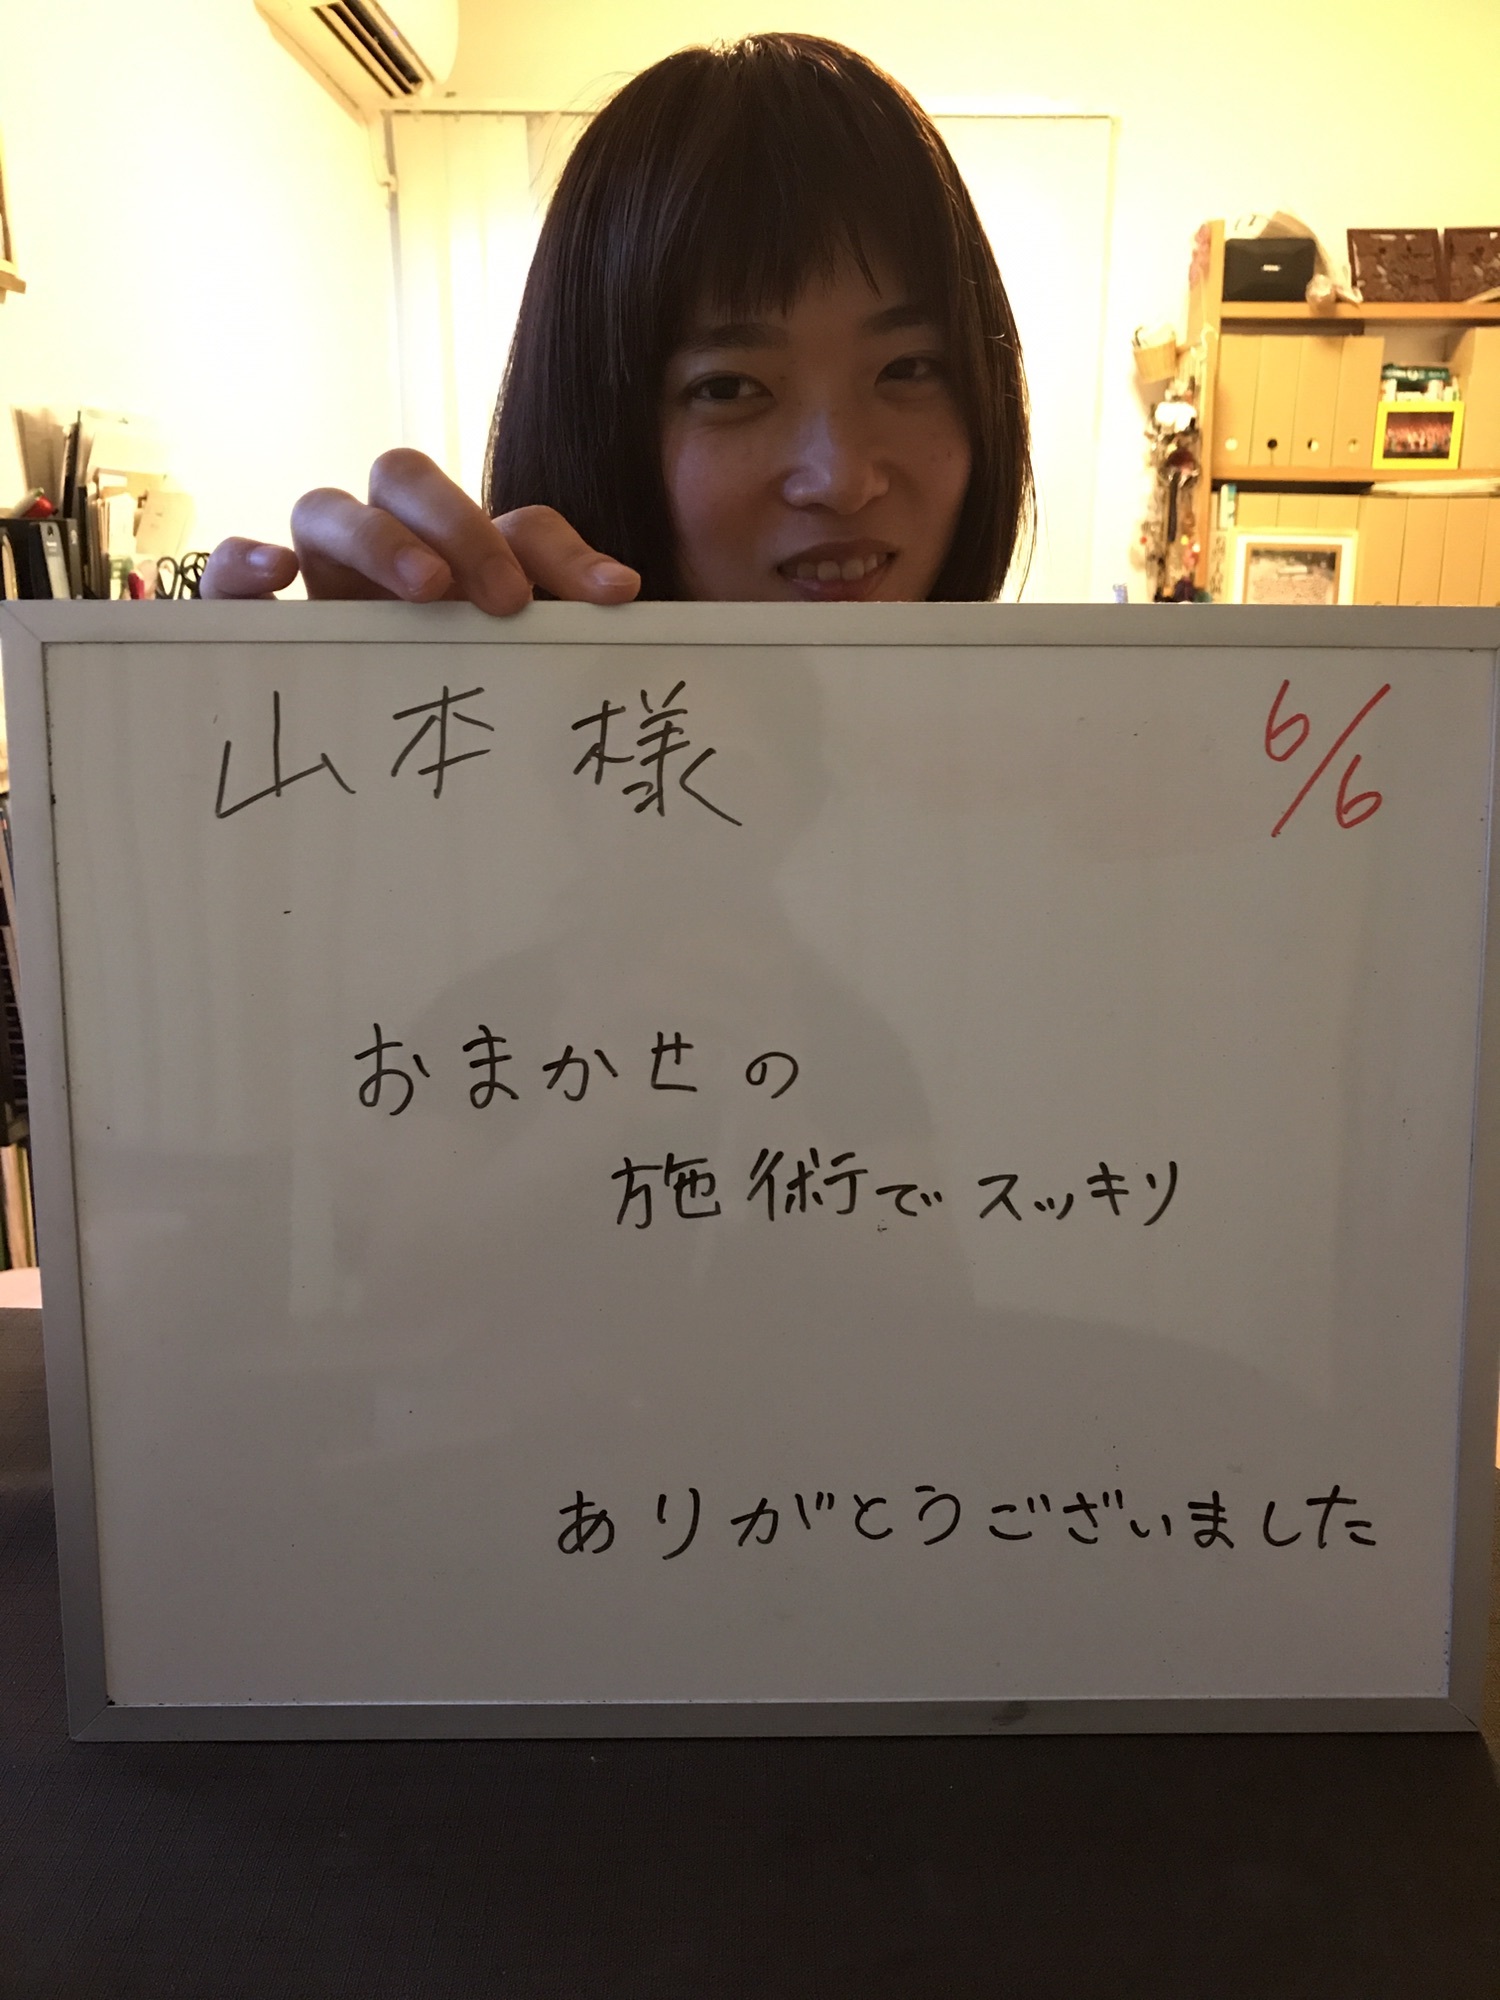 山本 様
6/6
おまかせの
施術でスッキリ
ありがとうございました